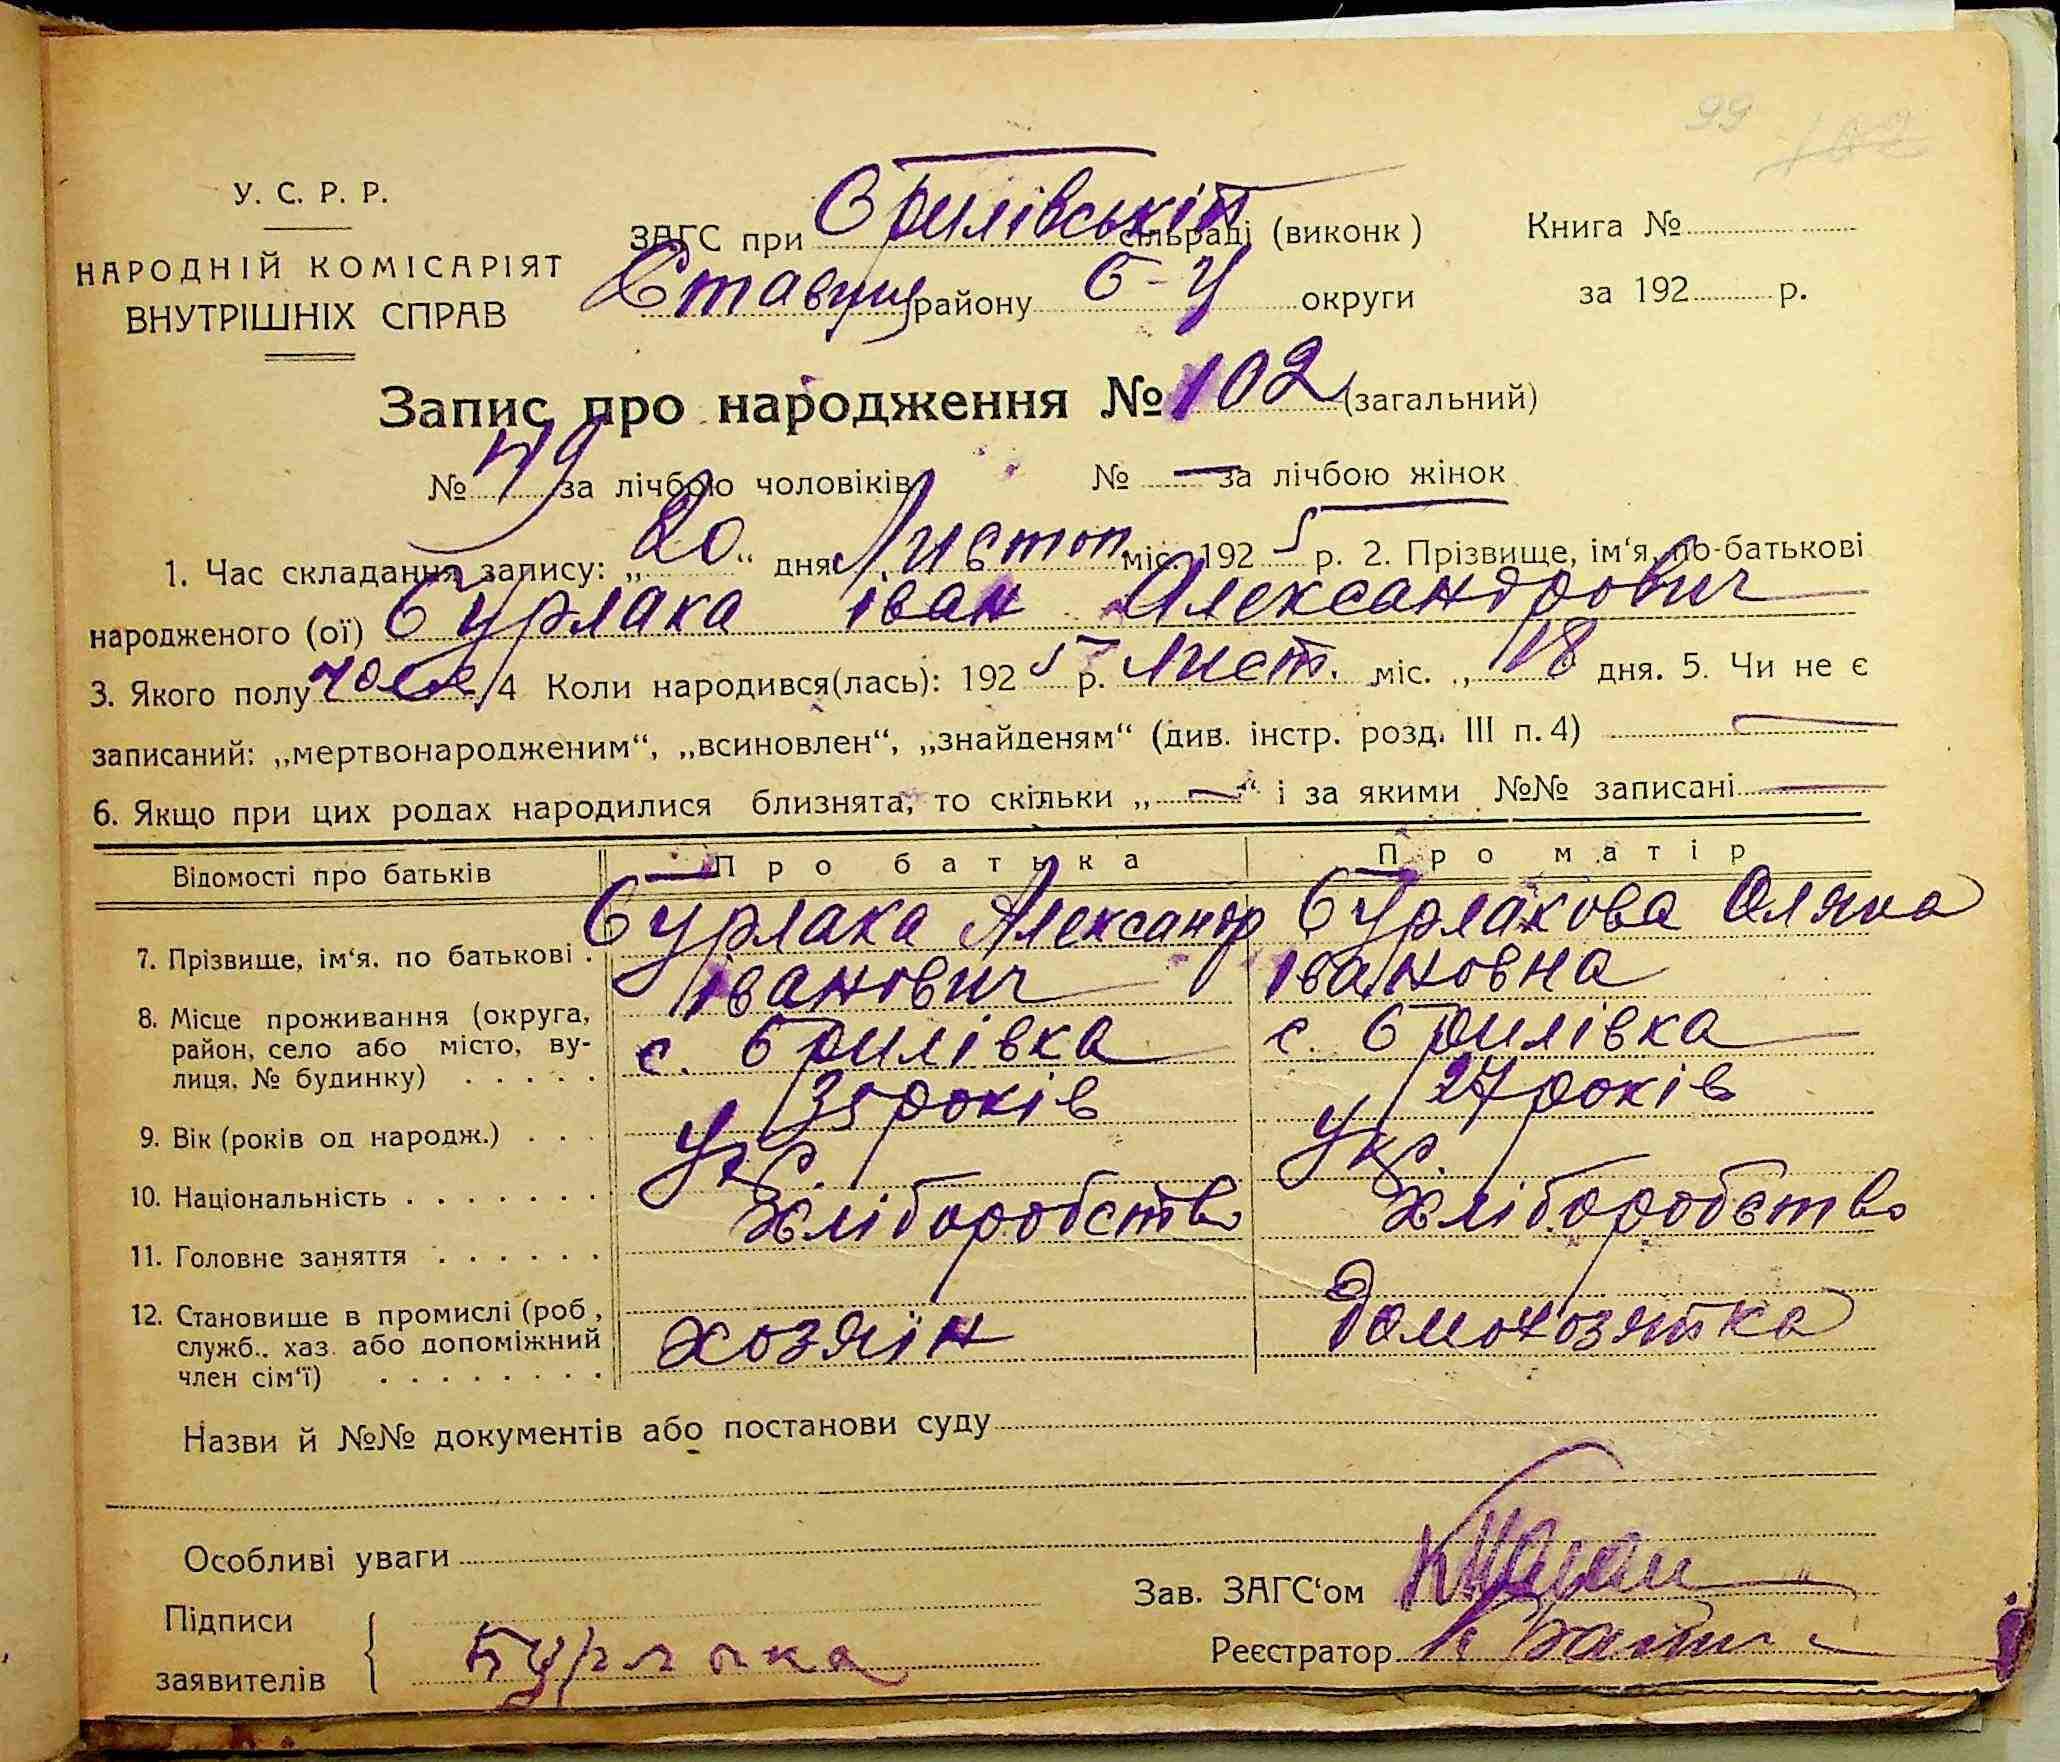 99 102
У. С. Р. Р.
НАРОДНІЙ КОМІСАРІЯТ
ВНУТРІШНІХ СПРАВ
ЗАГС при Брилівській сільраді (виконк)
Ставищ району Б-Ц округи
Книга №
за 192 р.
Запис про народження № 102 (загальний)
№ 49 за лічбою чоловіків № — за лічбою жінок
1. Час складання запису: „20“ дня Листоп міс. 1925 р. 2. Прізвище, ім‘я, по-батькові
народженого (ої) Бурлака іван Александрович
3. Якого полу чолов 4 Коли народився(лась): 1925 р. Лист. міс. „ 18 дня. 5. Чи не є
записаний: „мертвонародженим“, „всиновлен“, „знайденям“ (див. інстр. розд. III п. 4) —
6. Якщо при цих родах народилися близнята, то скільки „—“ і за якими №№ записані —
Відомості про батьків Про батька Про матір
7. Прізвище, ім‘я. по батькові . Бурлака Александр Бурлакова Оляна
іванович івановна
8. Місце проживання (округа,
район, село або місто, ву-
лиця, № будинку) . . . . . с. Брилівка с. Брилівка
9. Вік (років од народж.) . . . 35 років 27 років
10. Національність . . . . . . . Укр. Укр.
11. Головне заняття . . . . . . Хліборобство Хліборобство
12. Становище в промислі (роб,
служб., хаз. або допоміжний
член сім‘ї) . . . . . . . . хозяїн домохозяйка
Назви й №№ документів або постанови суду
Особливі уваги
Зав. ЗАГС‘ом
Підписи
заявителів Бурлака
Реєстратор